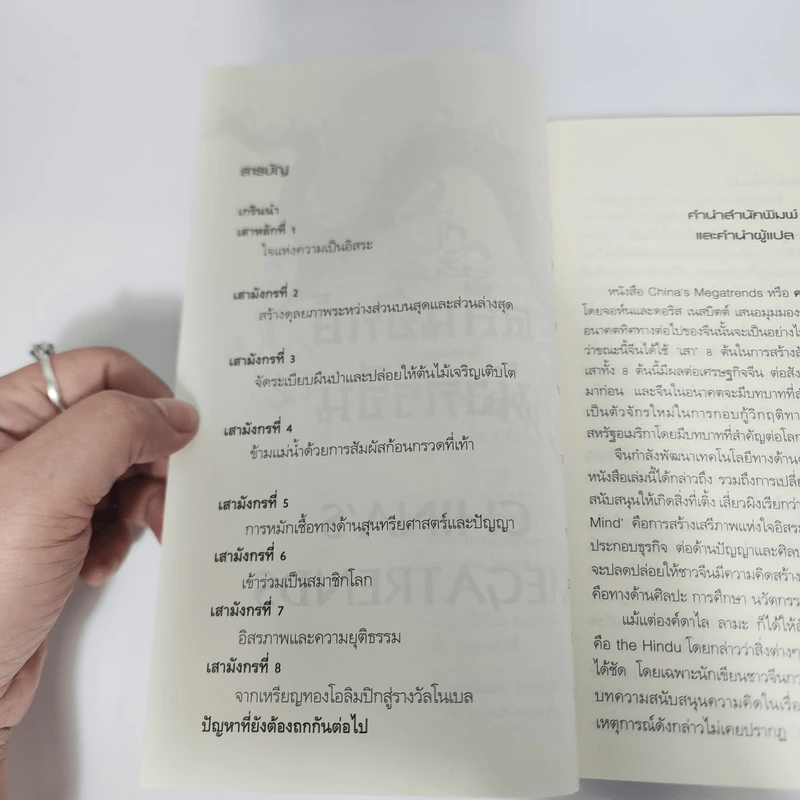 สารบัญ
เกริ่นนำ
เสาหลักที่ 1
ใจแห่งความเป็นอิสระ
เสามังกรที่ 2
สร้างดุลยภาพระหว่างส่วนบนสุดและส่วนล่างสุด
เสามังกรที่ 3
จัดระเบียบผืนป่าและปล่อยให้ต้นไม้เจริญเติบโต
เสามังกรที่ 4
ข้ามแม่น้ำด้วยการสัมผัสก้อนกรวดที่เท้า
เสามังกรที่ 5
การหมักเชื้อทางด้านสุนทรียศาสตร์และปัญญา
เสามังกรที่ 6
เข้าร่วมเป็นสมาชิกโลก
เสามังกรที่ 7
อิสรภาพและความยุติธรรม
เสามังกรที่ 8
จากเหรียญทองโอลิมปิกสู่รางวัลโนเบล
ปัญหาที่ยังต้องถกกันต่อไป
คำนำสำนักพิมพ์
และคำนำผู้แปล
หนังสือ China's Megatrends หรือ
โดยจอห์นและดอริส เนสบิตต์ เสนอมุมมอง
อนาคตทิศทางต่อไปของจีนนั้นจะเป็นอย่างไร
ว่าขณะนี้จีนได้ใช้ 'เสา' 8 ต้นในการสร้าง
เสาทั้ง 8 ต้นนี้มีผลต่อเศรษฐกิจจีน ต่อสัง
มาก่อน และจีนในอนาคตจะมีบทบาทที่สำ
เป็นตัวจักรใหม่ในการกอบกู้วิกฤติทาง
สหรัฐอเมริกาโดยมีบทบาทที่สำคัญต่อโลก
จีนกำลังพัฒนาเทคโนโลยีทางด้าน
หนังสือเล่มนี้ได้กล่าวถึง รวมถึงการเปลี่
สนับสนุนให้เกิดสิ่งที่เติ้ง เสี่ยวผิงเรียกว่า
Mind' คือการสร้างเสรีภาพแห่งใจอิสระ
ประกอบธุรกิจ ต่อด้านปัญญาและศิลป
จะปลดปล่อยให้ชาวจีนมีความคิดสร้าง
คือทางด้านศิลปะ การศึกษา นวัตกรร
แม้แต่องค์ดาไล ลามะ ก็ได้ให้สั
คือ the Hindu โดยกล่าวว่าสิ่งต่างๆ
ได้ชัด โดยเฉพาะนักเขียนชาวจีนกว่
บทความสนับสนุนความคิดในเรื่อ
เหตุการณ์ดังกล่าวไม่เคยปรากฏ